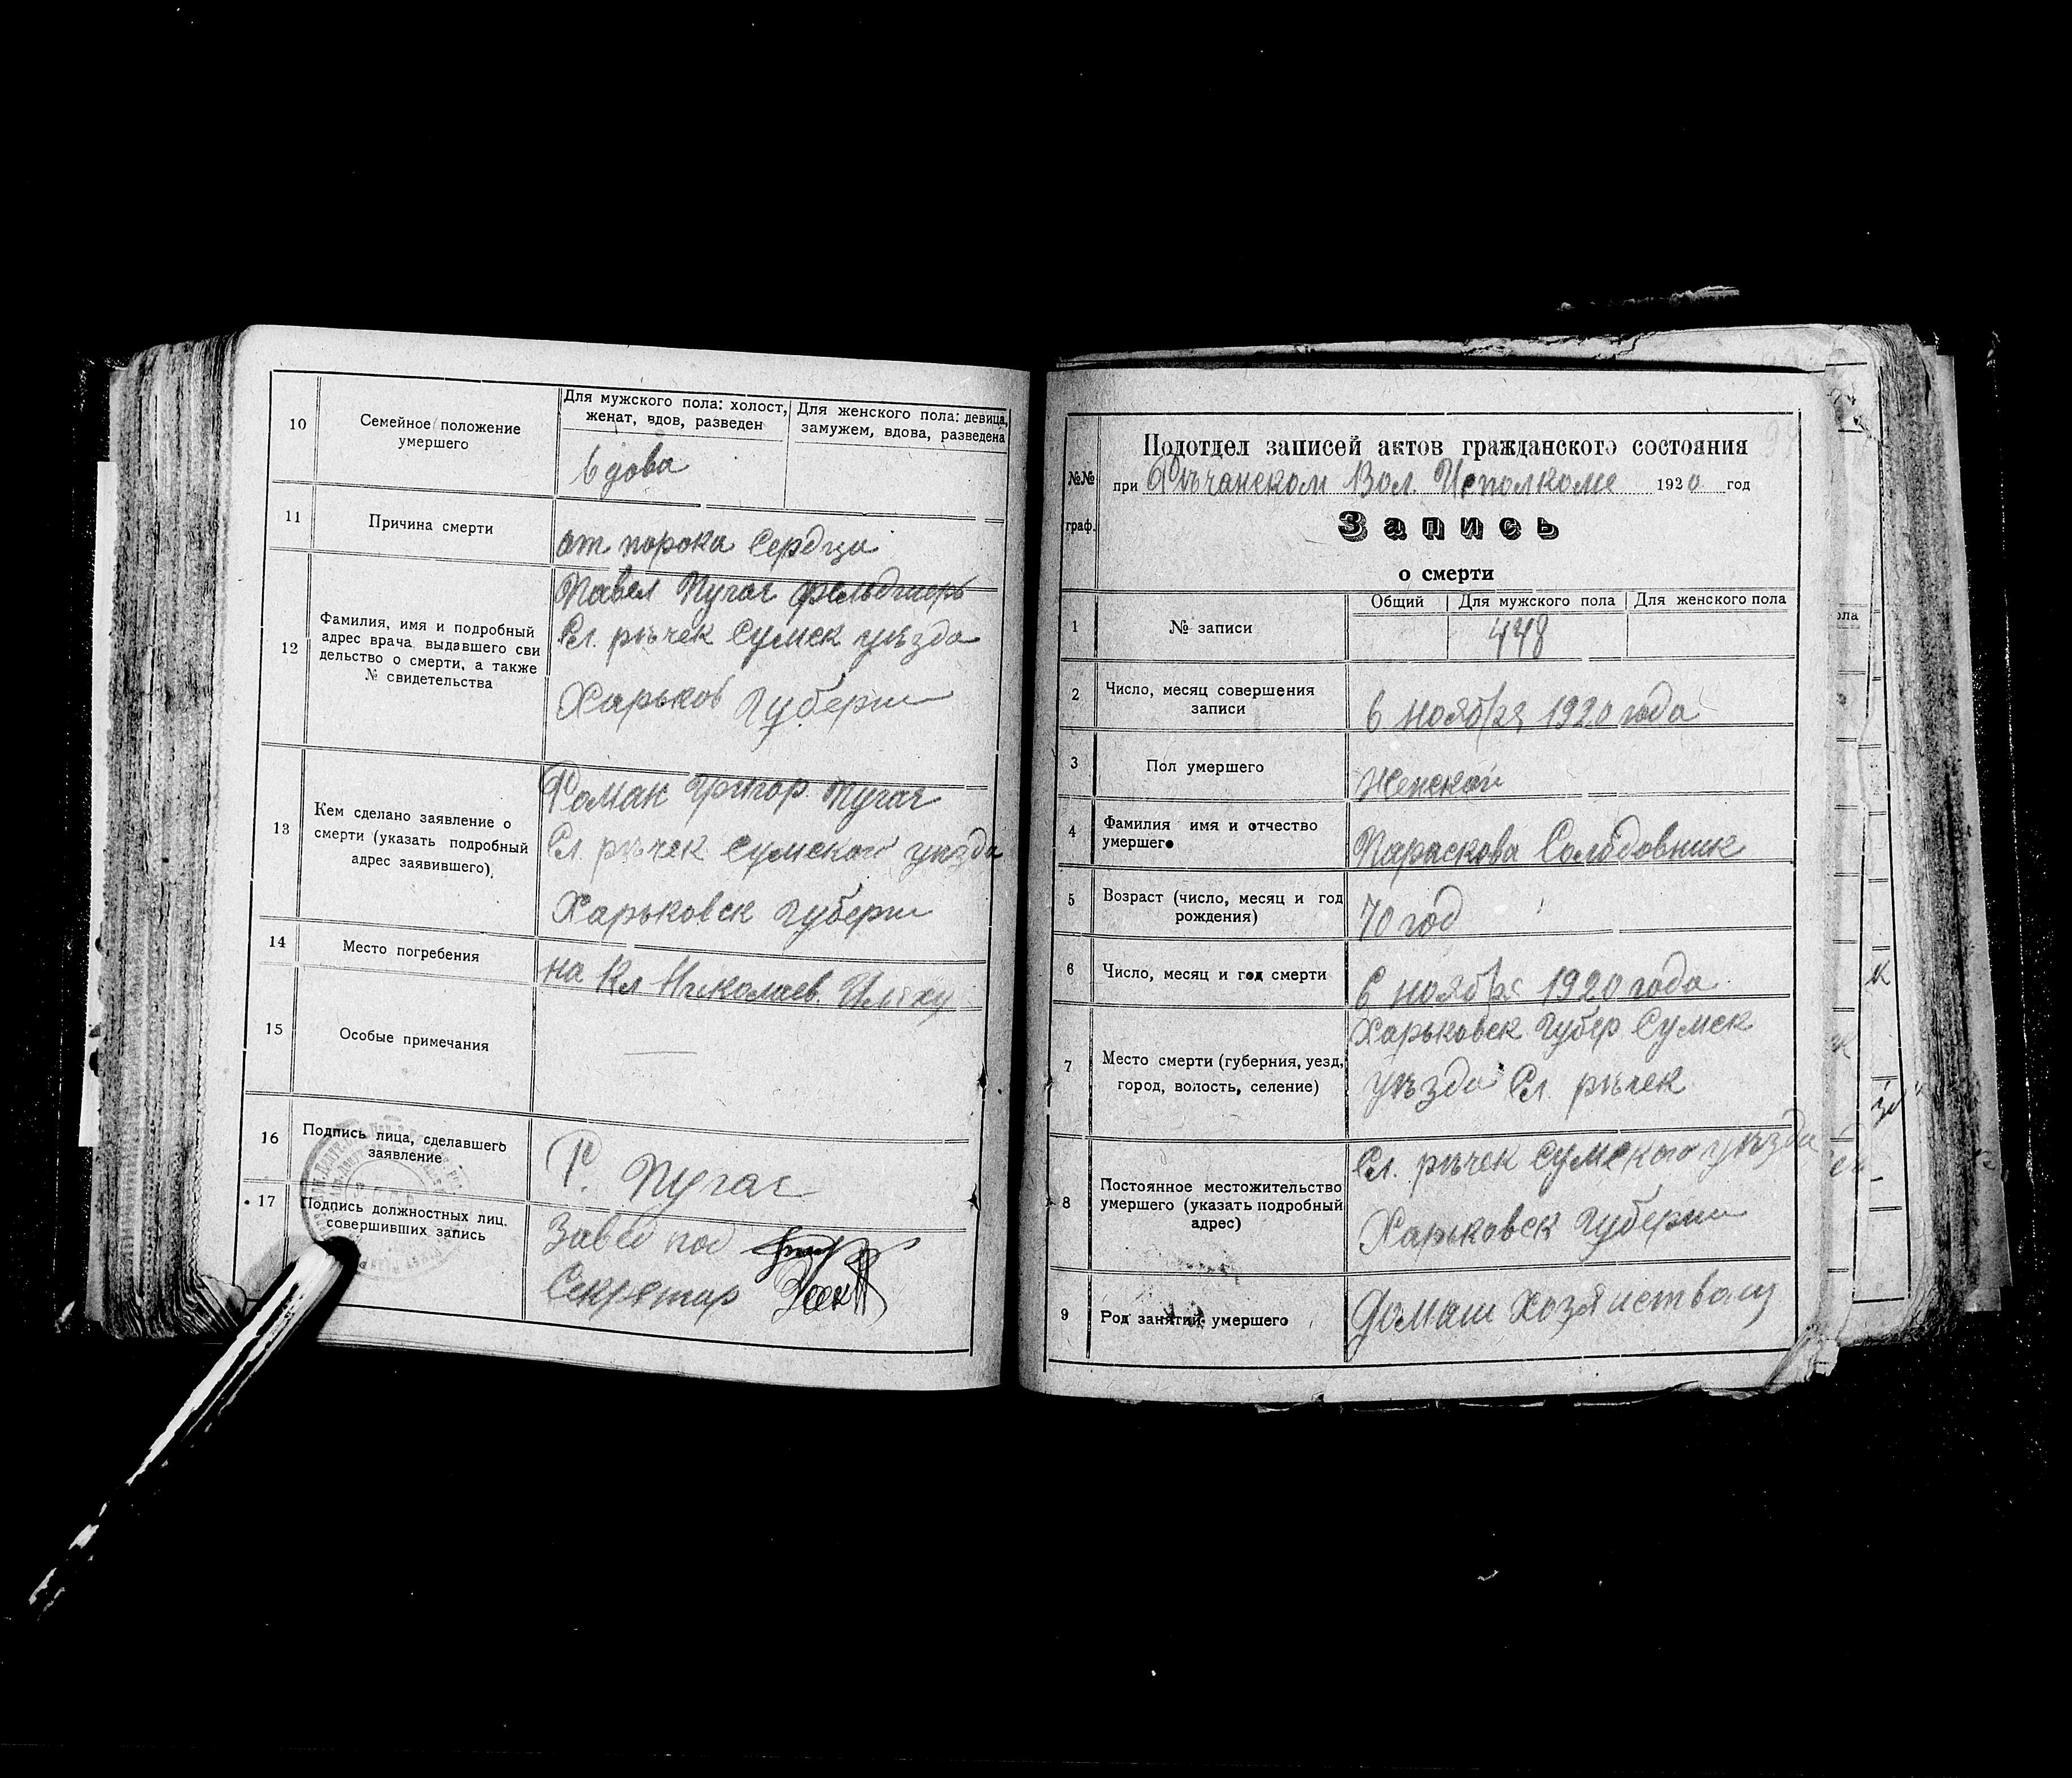 10
Семейное положение
умершего
Для мужского пола: холост,
женат, вдов, разведен
Для женского пола: девица,
замужем, вдова, разведена
вдова
11
Причина смерти
от порока сердца
12
Фамилия, имя и подробный
адрес врача выдавшего сви
дельство о смерти, а также
№ свидетельства
Павел Пугач фельдшерь
Сл. рѣчек Сумск уѣзда
Харьков Губерн
13
Кем сделано заявление о
смерти (указать подробный
адрес заявившего).
Роман Григор Пугач
Сл. рѣчек Сумского уѣзда
Харьковск губерн
14
Место погребения
на Кл Николаев.
15
Особые примечания
16
Подпись лица, сделавшего
заявление
Р. Пугач
17
Подпись должностных лиц.
совершивших запись
Завед под
Секретар
№№
граф.
Подотдел записей актов гражданского состояния
при Рѣчанском Вол. Исполкоме 1920 год
Запись
о смерти
1
№ записи
Общий
Для мужского пола
Для женского пола
448
2
Число, месяц совершения
записи
6 ноября 1920 года
3
Пол умершего
Женской
4
Фамилия имя и отчество
умершего
Параскова Солодовник
5
Возраст (число, месяц и год
рождения)
70 год
6
Число, месяц и год смерти
6 ноября 1920 года
7
Место смерти (губерния, уезд,
город, волость, селение)
Харьковск Губер Сумск
уѣзда Сл. рѣчек
8
Постоянное местожительство
умершего (указать подробный
адрес)
Сл. рѣчек Сумского уѣзда
Харьковск Губерн
9
Род занятий умершего
Домаш